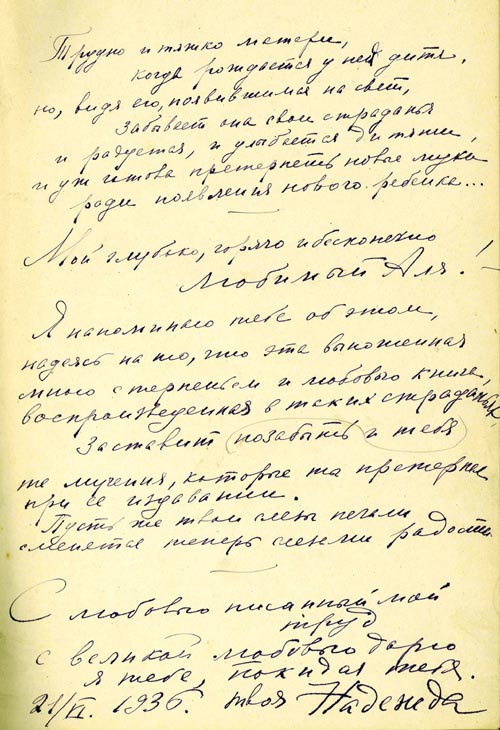 Трудно и тяжко матери,
когда рождается у ней дитя.
но, видя его, появившимся на свет,
Забывает она свои страданья
и радуется, и улыбается дитяти,
и уж готова претерпеть новые муки
ради появления нового ребенка...
Мой глубоко, горячо и бесконечно
любимый Аля! —
Я напоминаю тебе об этом,
надеясь на то, что эта выношенная
мною с терпеньем и любовью книга,
воспроизведенная в таких страданьях,
Заставит позабыть и тебя
те мучения, которые ты претерпел
при ее издавании.
Пусть же твои слезы печали
сменятся теперь слезами радости
С любовью писанный мой
труд
с великой любовью дарю
я тебе, покидая тебя.
21/VI. 1936. твоя Надежда